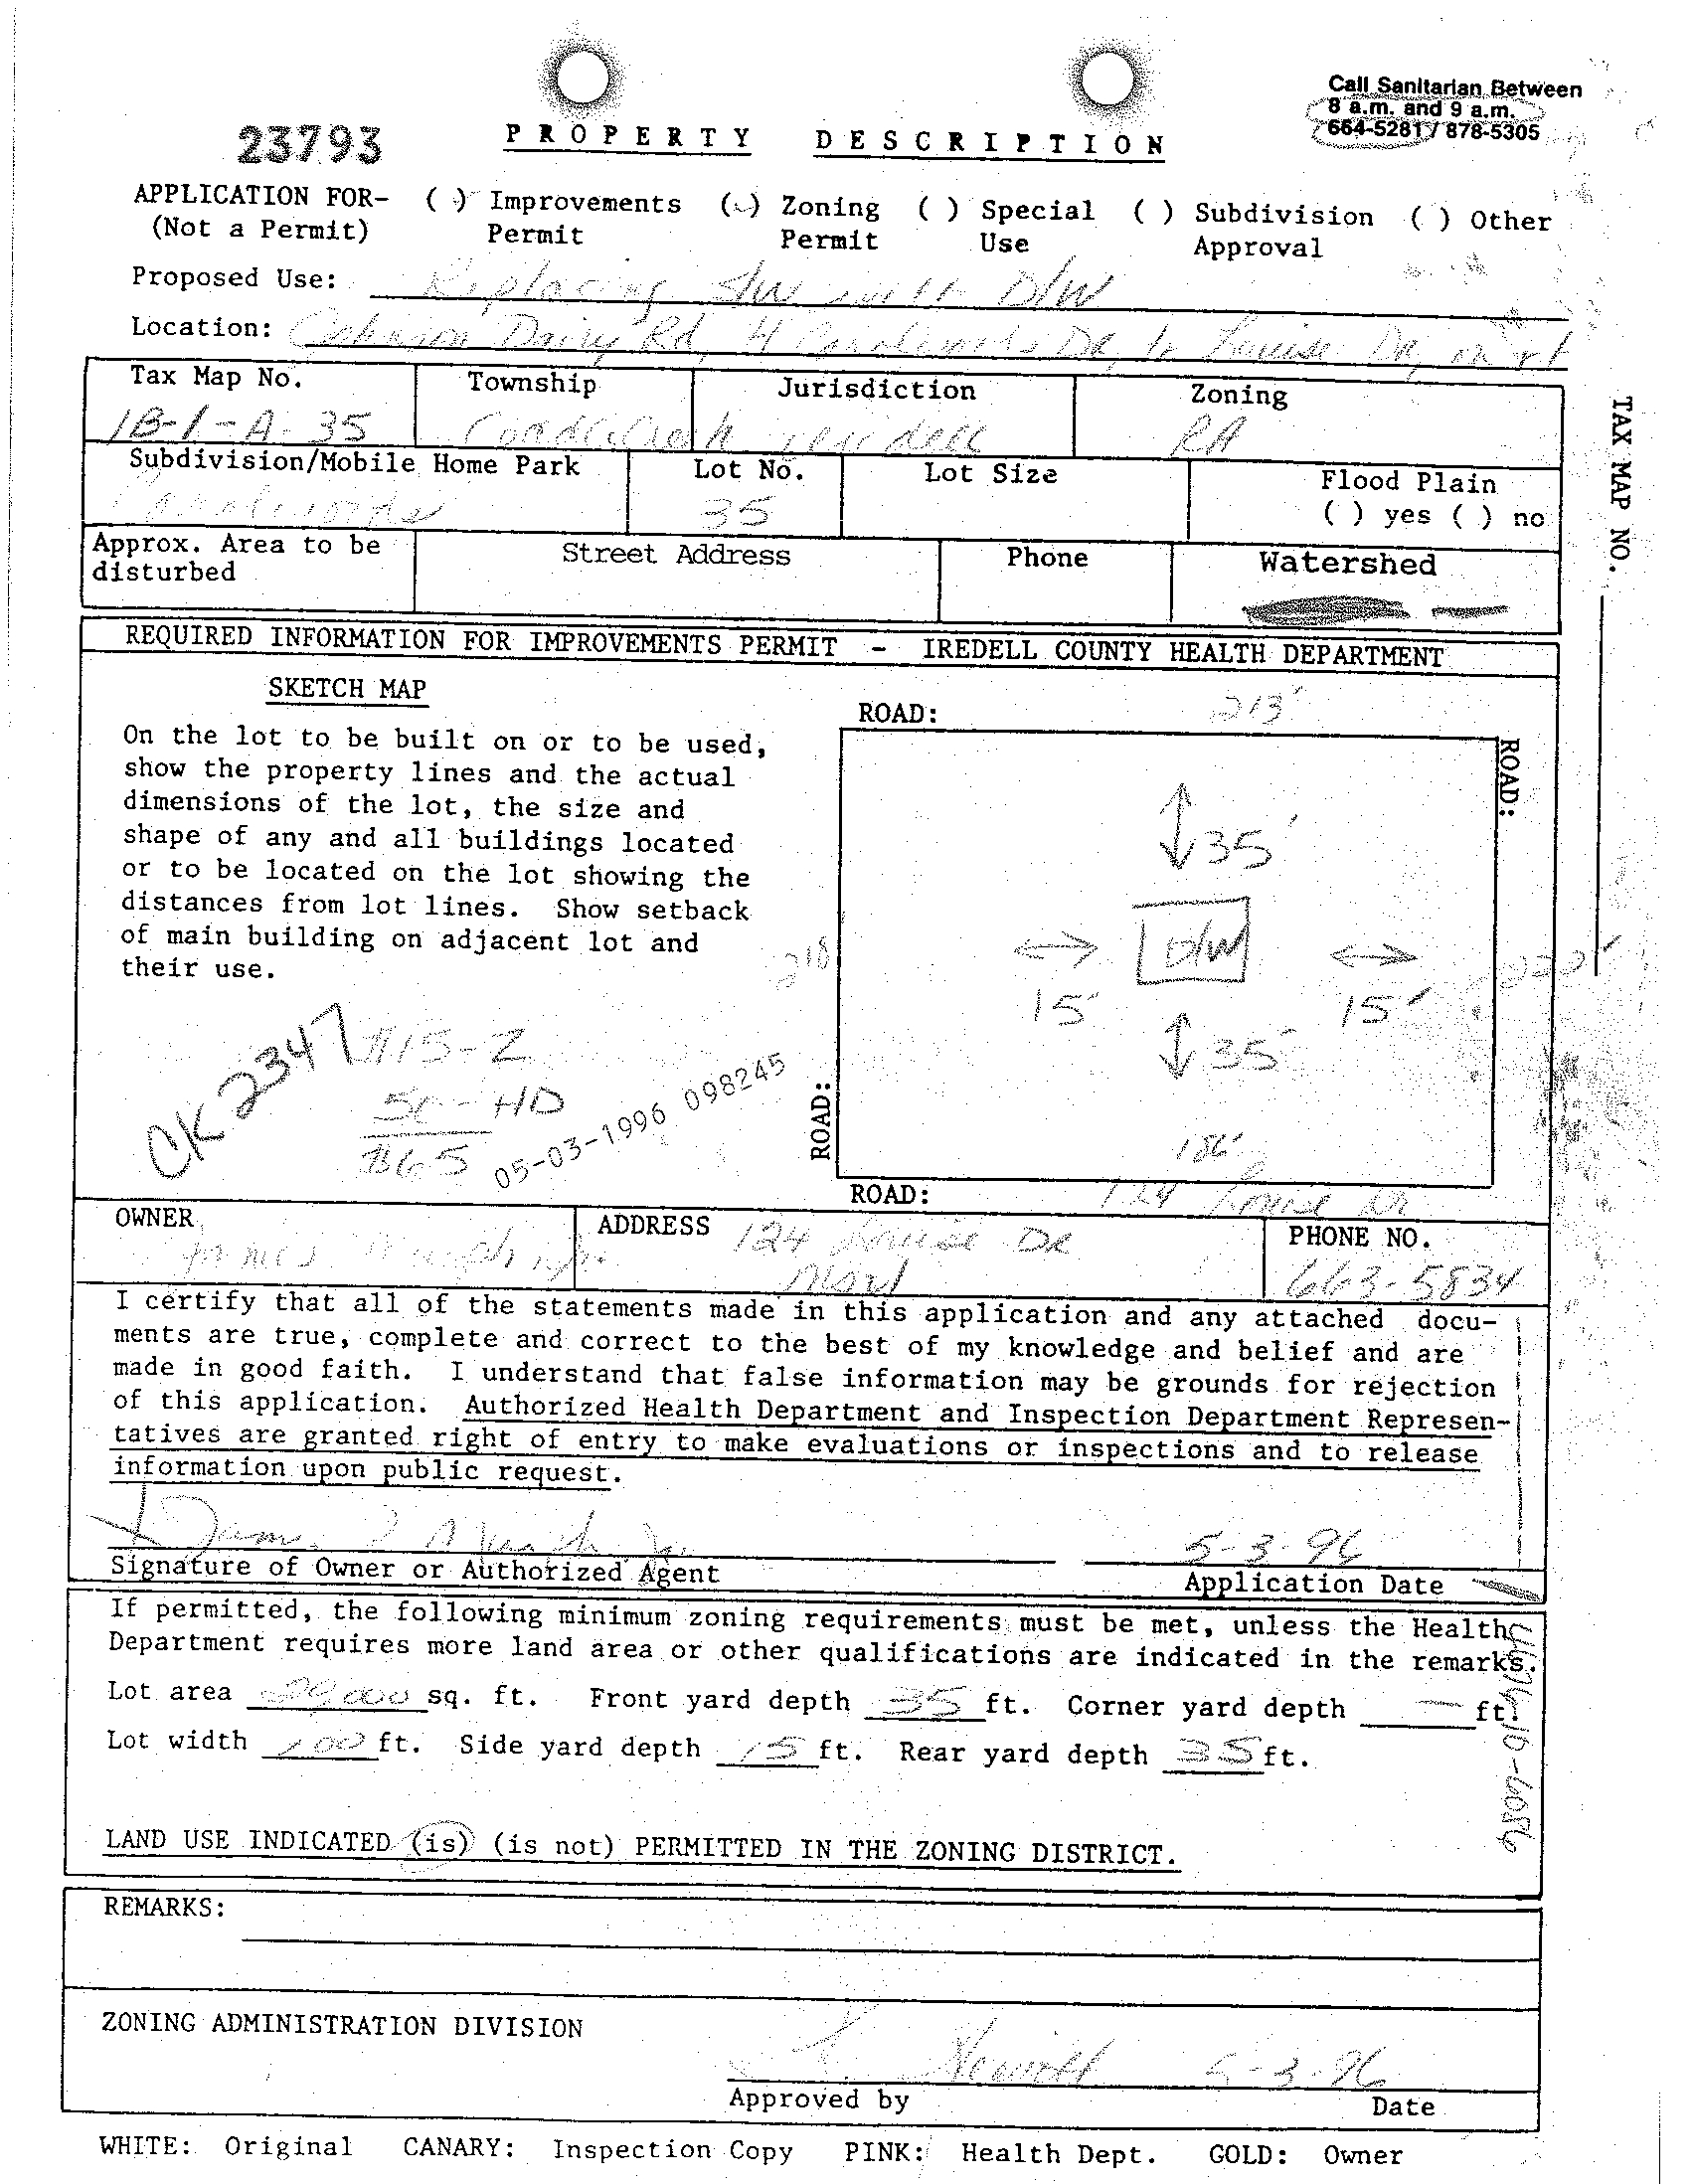 Call Sanitarian Between
8 a.m. and 9 a.m.
664-5281 / 878-5305
23793
PROPERTY DESCRIPTION
APPLICATION FOR- ( ) Improvements ( ) Zoning ( ) Special ( ) Subdivision ( ) Other
(Not a Permit) Permit Permit Use Approval
Proposed Use: Replacing S/W with D/W
Location: Johnson Dairy Rd, Dr, Louise Dr, on rt
Tax Map No. Township Jurisdiction Zoning
1B-1-A-35 Coddle Creek Iredell RA
Subdivision/Mobile Home Park Lot No. Lot Size Flood Plain
35 ( ) yes ( ) no
Approx. Area to be disturbed Street Address Phone Watershed
TAX MAP NO.
REQUIRED INFORMATION FOR IMPROVEMENTS PERMIT - IREDELL COUNTY HEALTH DEPARTMENT
SKETCH MAP
On the lot to be built on or to be used,
show the property lines and the actual
dimensions of the lot, the size and
shape of any and all buildings located
or to be located on the lot showing the
distances from lot lines. Show setback
of main building on adjacent lot and
their use.
ROAD: 213'
ROAD:
35'
D/W
218
15' 15'
35'
186'
ROAD:
ROAD: 124 Louise Dr
CK 2347 $15-Z
50-HD
$65
05-03-1996 098245
OWNER ADDRESS 124 Louise Dr PHONE NO.
James Morl 663-5834
I certify that all of the statements made in this application and any attached docu-
ments are true, complete and correct to the best of my knowledge and belief and are
made in good faith. I understand that false information may be grounds for rejection
of this application. Authorized Health Department and Inspection Department Represen-
tatives are granted right of entry to make evaluations or inspections and to release
information upon public request.
5-3-96
Signature of Owner or Authorized Agent Application Date
If permitted, the following minimum zoning requirements must be met, unless the Health
Department requires more land area or other qualifications are indicated in the remarks.
Lot area sq. ft. Front yard depth 35 ft. Corner yard depth — ft.
Lot width 100 ft. Side yard depth 15 ft. Rear yard depth 35 ft.
LAND USE INDICATED (is) (is not) PERMITTED IN THE ZONING DISTRICT.
REMARKS:
ZONING ADMINISTRATION DIVISION
5-3-96
Approved by Date
WHITE: Original CANARY: Inspection Copy PINK: Health Dept. GOLD: Owner